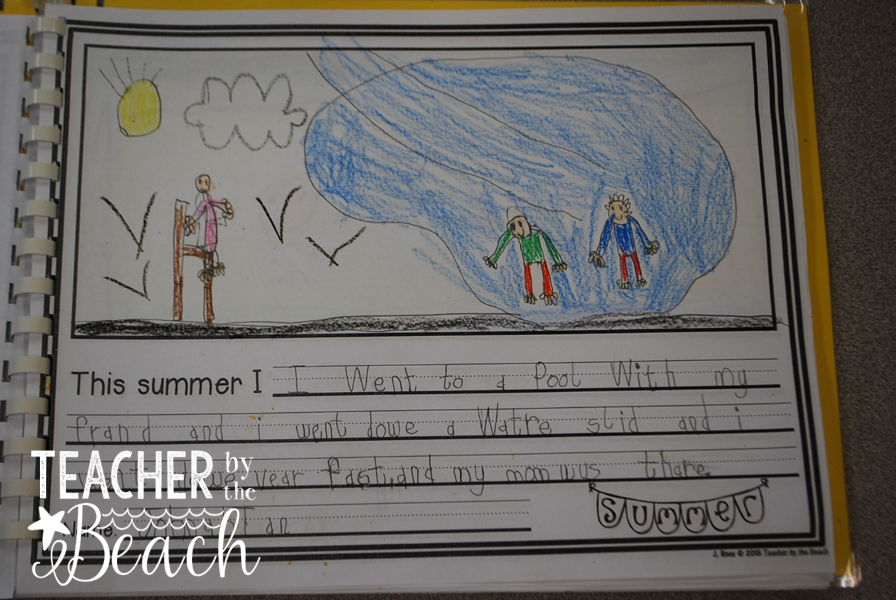 This summer I I Went to a Pool With my
frand and i went dowe a Watre slid and i
vear fast, and my mom wus thare.
SUMMER
J. Ross © 2015 Teacher by the Beach
TEACHER by the Beach